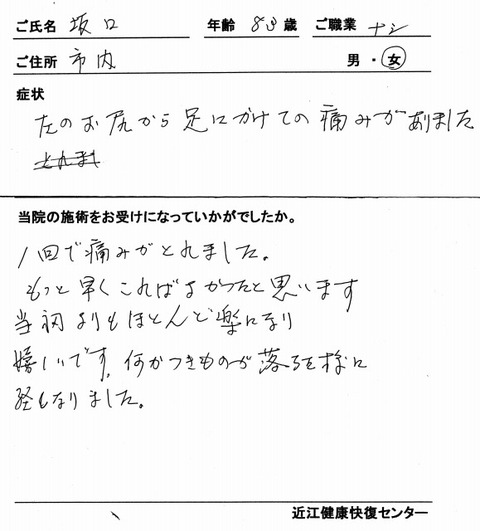 ご氏名 坂口 年齢 83歳 ご職業 ナシ
ご住所 市内 男・女
症状
左のお尻から足にかけての痛みがありました
とれまし
当院の施術をお受けになっていかがでしたか。
1回で痛みがとれました。
もっと早くこればよかったと思います
当初よりもほとんど楽になり
嬉しいです。何かつきものが落る様に
軽くなりました。
近江健康快復センター